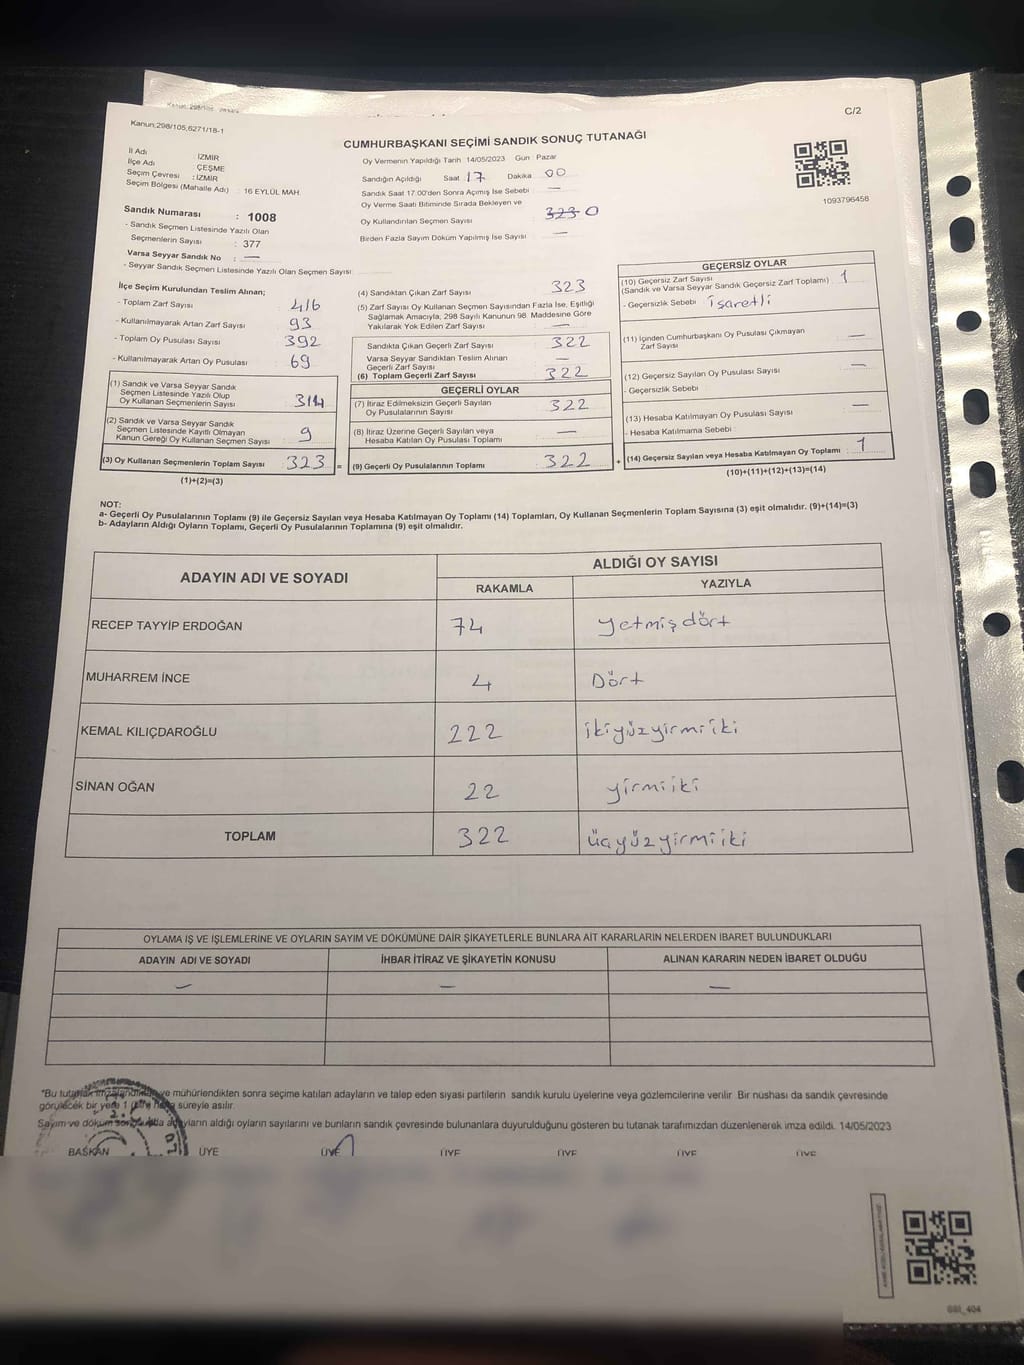 Kanun:298/105,6271/18-1
C/2
CUMHURBAŞKANI SEÇİMİ SANDIK SONUÇ TUTANAĞI
İl Adı : İZMİR
İlçe Adı : ÇEŞME
Seçim Çevresi : İZMİR
Seçim Bölgesi (Mahalle Adı) : 16 EYLÜL MAH.
Sandık Numarası : 1008
- Sandık Seçmen Listesinde Yazılı Olan
Seçmenlerin Sayısı : 377
Varsa Seyyar Sandık No : —
- Seyyar Sandık Seçmen Listesinde Yazılı Olan Seçmen Sayısı:
Oy Vermenin Yapıldığı Tarih 14/05/2023 Gün : Pazar
Sandığın Açıldığı Saat 17 Dakika 00
Sandık Saat 17:00'den Sonra Açımış İse Sebebi —
Oy Verme Saati Bitiminde Sırada Bekleyen ve
Oy Kullandırılan Seçmen Sayısı 323 0
Birden Fazla Sayım Döküm Yapılmış İse Sayısı —
1093796458
İlçe Seçim Kurulundan Teslim Alınan;
- Toplam Zarf Sayısı : 416
- Kullanılmayarak Artan Zarf Sayısı : 93
- Toplam Oy Pusulası Sayısı : 392
- Kullanılmayarak Artan Oy Pusulası : 69
(1) Sandık ve Varsa Seyyar Sandık
Seçmen Listesinde Yazılı Olup
Oy Kullanan Seçmenlerin Sayısı : 314
(2) Sandık ve Varsa Seyyar Sandık
Seçmen Listesinde Kayıtlı Olmayan
Kanun Gereği Oy Kullanan Seçmen Sayısı : 9
(3) Oy Kullanan Seçmenlerin Toplam Sayısı : 323 =
(1)+(2)=(3)
(4) Sandıktan Çıkan Zarf Sayısı 323
(5) Zarf Sayısı Oy Kullanan Seçmen Sayısından Fazla İse, Eşitliği
Sağlamak Amacıyla, 298 Sayılı Kanunun 98. Maddesine Göre
Yakılarak Yok Edilen Zarf Sayısı —
Sandıkta Çıkan Geçerli Zarf Sayısı 322
Varsa Seyyar Sandıktan Teslim Alınan
Geçerli Zarf Sayısı —
(6) Toplam Geçerli Zarf Sayısı 322
GEÇERLİ OYLAR
(7) İtiraz Edilmeksizin Geçerli Sayılan
Oy Pusulalarının Sayısı 322
(8) İtiraz Üzerine Geçerli Sayılan veya
Hesaba Katılan Oy Pusulası Toplamı —
(9) Geçerli Oy Pusulalarının Toplamı 322 +
GEÇERSİZ OYLAR
(10) Geçersiz Zarf Sayısı
(Sandık ve Varsa Seyyar Sandık Geçersiz Zarf Toplamı) : 1
- Geçersizlik Sebebi : işaretli
(11) İçinden Cumhurbaşkanı Oy Pusulası Çıkmayan
Zarf Sayısı —
(12) Geçersiz Sayılan Oy Pusulası Sayısı —
- Geçersizlik Sebebi
(13) Hesaba Katılmayan Oy Pusulası Sayısı —
- Hesaba Katılmama Sebebi :
(14) Geçersiz Sayılan veya Hesaba Katılmayan Oy Toplamı : 1
(10)+(11)+(12)+(13)=(14)
NOT:
a- Geçerli Oy Pusulalarının Toplamı (9) ile Geçersiz Sayılan veya Hesaba Katılmayan Oy Toplamı (14) Toplamları, Oy Kullanan Seçmenlerin Toplam Sayısına (3) eşit olmalıdır. (9)+(14)=(3)
b- Adayların Aldığı Oyların Toplamı, Geçerli Oy Pusulalarının Toplamına (9) eşit olmalıdır.
ADAYIN ADI VE SOYADI ALDIĞI OY SAYISI
RAKAMLA YAZIYLA
RECEP TAYYİP ERDOĞAN 74 yetmişdört
MUHARREM İNCE 4 Dört
KEMAL KILIÇDAROĞLU 222 ikiyüzyirmiiki
SİNAN OĞAN 22 yirmiiki
TOPLAM 322 üçyüzyirmiiki
OYLAMA İŞ VE İŞLEMLERİNE VE OYLARIN SAYIM VE DÖKÜMÜNE DAİR ŞİKAYETLERLE BUNLARA AİT KARARLARIN NELERDEN İBARET BULUNDUKLARI
ADAYIN ADI VE SOYADI İHBAR İTİRAZ VE ŞİKAYETİN KONUSU ALINAN KARARIN NEDEN İBARET OLDUĞU
— — —
*Bu tutanak ve mühürlendikten sonra seçime katılan adayların ve talep eden siyasi partilerin sandık kurulu üyelerine veya gözlemcilerine verilir. Bir nüshası da sandık çevresinde
görülecek bir yere 1 süreyle asılır.
Sayım ve döküm adayların aldığı oyların sayılarını ve bunların sandık çevresinde bulunanlara duyurulduğunu gösteren bu tutanak tarafımızdan düzenlenerek imza edildi. 14/05/2023
BAŞKAN ÜYE ÜYE ÜYE ÜYE ÜYE ÜYE